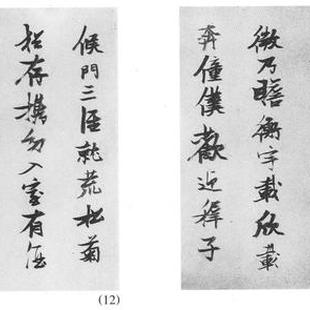 微乃瞻衡宇載欣載
奔僮僕歡迎稚子
候門三徑就荒松菊
猶存携幼入室有酒
(12)